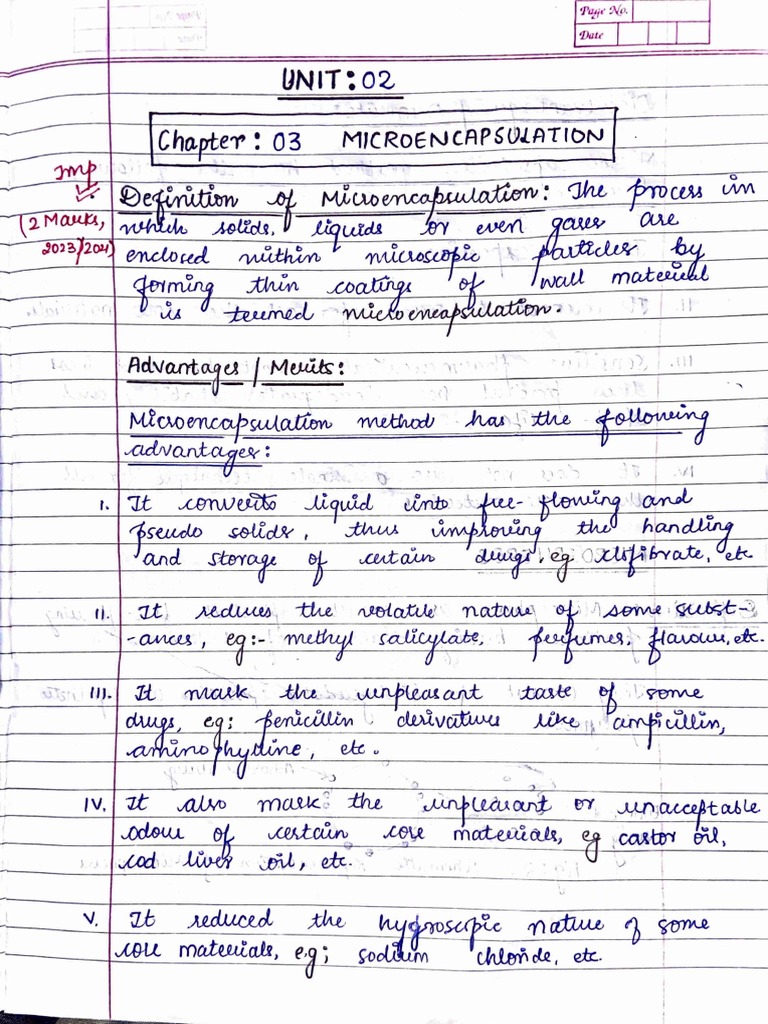 Page No.
Date
UNIT: 02
Chapter: 03 MICROENCAPSULATION
Imp
(2 Marks,
2023/2021)
Definition of Microencapsulation: The process in
which solids, liquids or even gases are
enclosed within microscopic particles by
forming thin coatings of wall material
is termed microencapsulation.
Advantages / Merits:
Microencapsulation method has the following
advantages:
I. It converts liquid into free-flowing and
pseudo solids, thus improving the handling
and storage of certain drugs, eg clofibrate, etc
II. It reduces the volatile nature of some subst-
-ances, eg:- methyl salicylate, perfumes, flavour, etc.
III. It mark the unpleasant taste of some
drugs, eg: penicillin derivatives like ampicillin,
aminophylline, etc.
IV. It also mark the unpleasant or unacceptable
odour of certain core materials, eg castor oil,
cod liver oil, etc.
V. It reduced the hygroscopic nature of some
core materials, e.g; sodium chloride, etc.